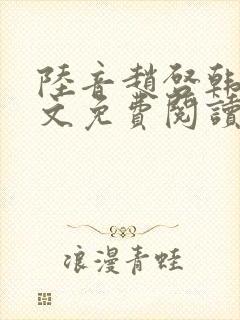 陸音趙啓韓
文免費閱讀
浪漫青蛙